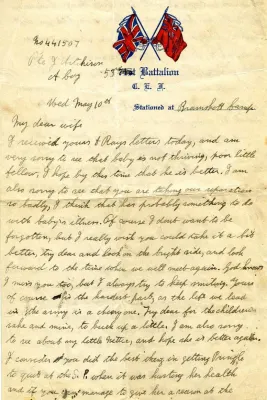 No 441507
Pte
A Coy 53rd Battalion
C. E. F.
Stationed at Bramshott Camp
Wed May 10th
My dear wife
I received yours & Rays letter today, and am
very sorry to see that baby is not thriving, poor little
fellow, I hope by this time that he is better. I am
also sorry to see that you are taking our separation
so badly, I think that has probably something to do
with baby's illness. Of course I dont want to be
forgotten, but I really wish you could take it a bit
better, try dear and look on the bright side, and look
forward to the time when we will meet again. God knows
I miss you too, but I always try to keep smiling. Yours
of course is the hardest part, as the life we lead
in the army is a cheery one. Try dear for the childrens
sake and mine, to buck up a little. I am also sorry
to see about my little and hope she is better again.
I consider you did the best thing in getting
to quit at the S.P. when it was hurting her health
and if you manage to give her a season at the